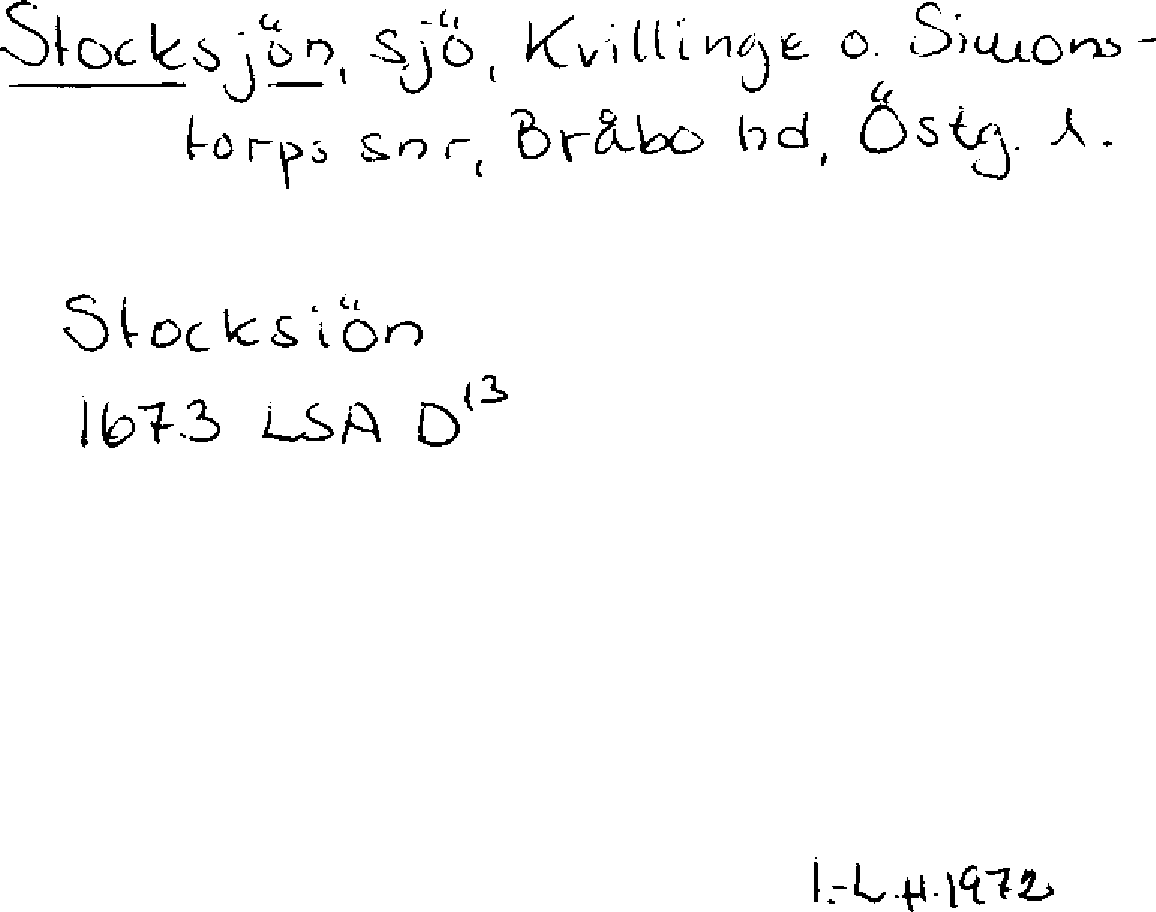 Stocksjön, sjö, Kvillinge o. Simons-
torps snr, Bråbo hd, Östg. l.
Stocksiön
1673 LSA D13
I.-L.H. 1972